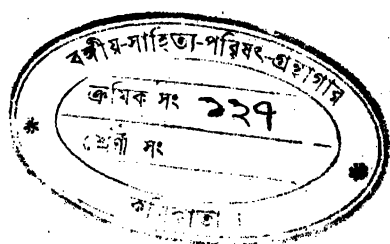 বঙ্গীয়-সাহিত্য-পরিষৎ-গ্রন্থাগার
ক্রমিক সং ১২৭
শ্রেণী সং
* *
কলিকাতা।